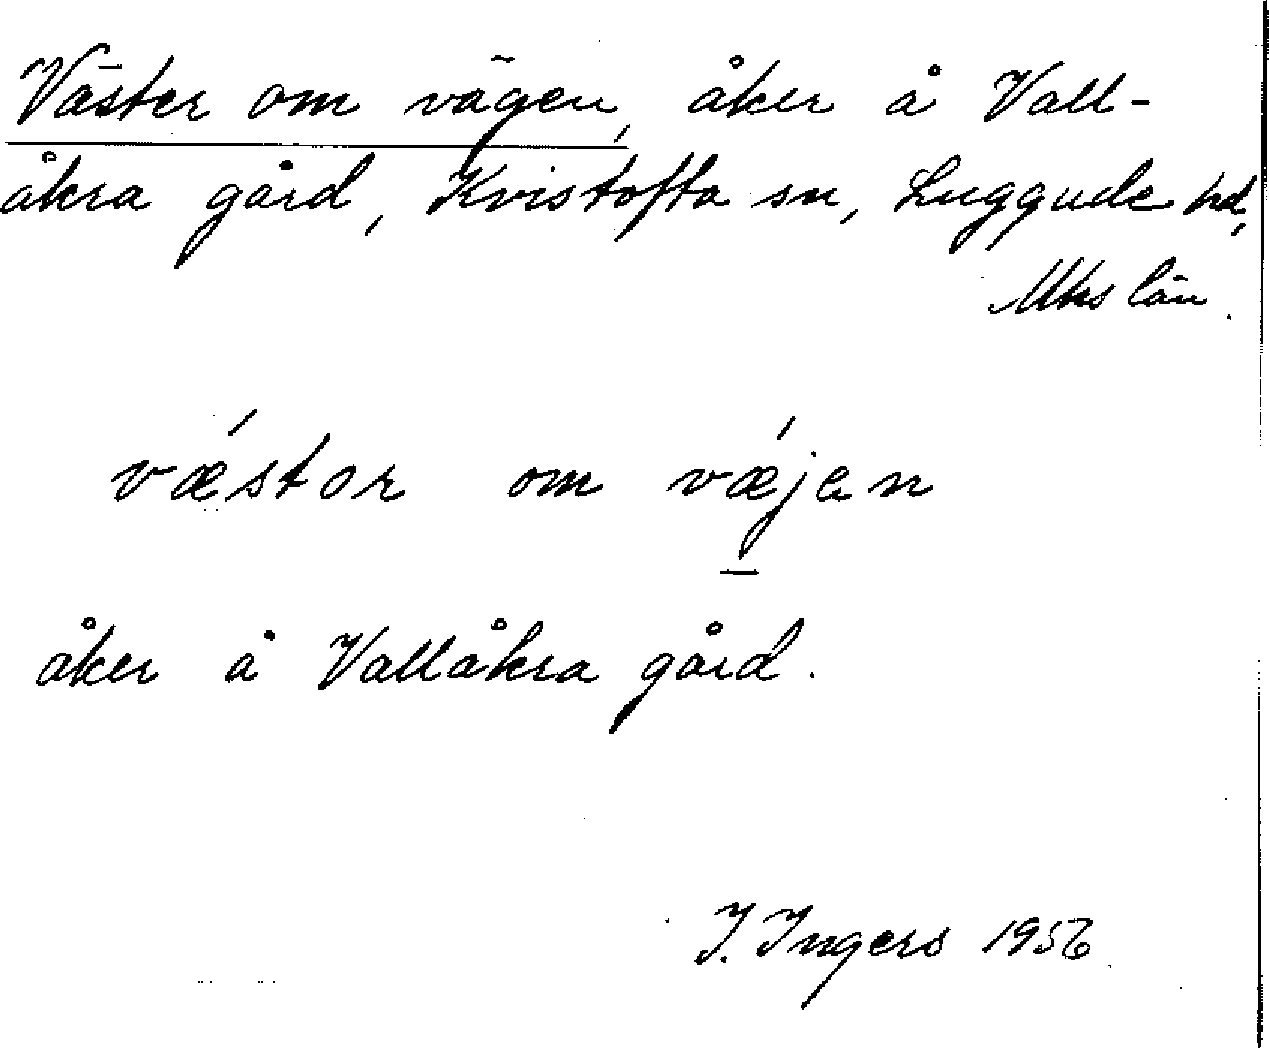 Väster om vägen, åker å Vall-
åkra gård, Kvistofta sn, Luggude hd,
Mhs län.
vǽstor om vǽjen
åker å Vallåkra gård.
I. Ingers 1956